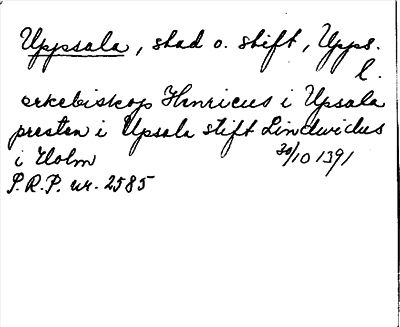 Uppsala, stad o. stift, Upps.
l.
erkebiskop Henricus i Upsala
presten i Upsala stift Lindvidus
i Holm 30/10 1391
P.R.P. nr. 2585